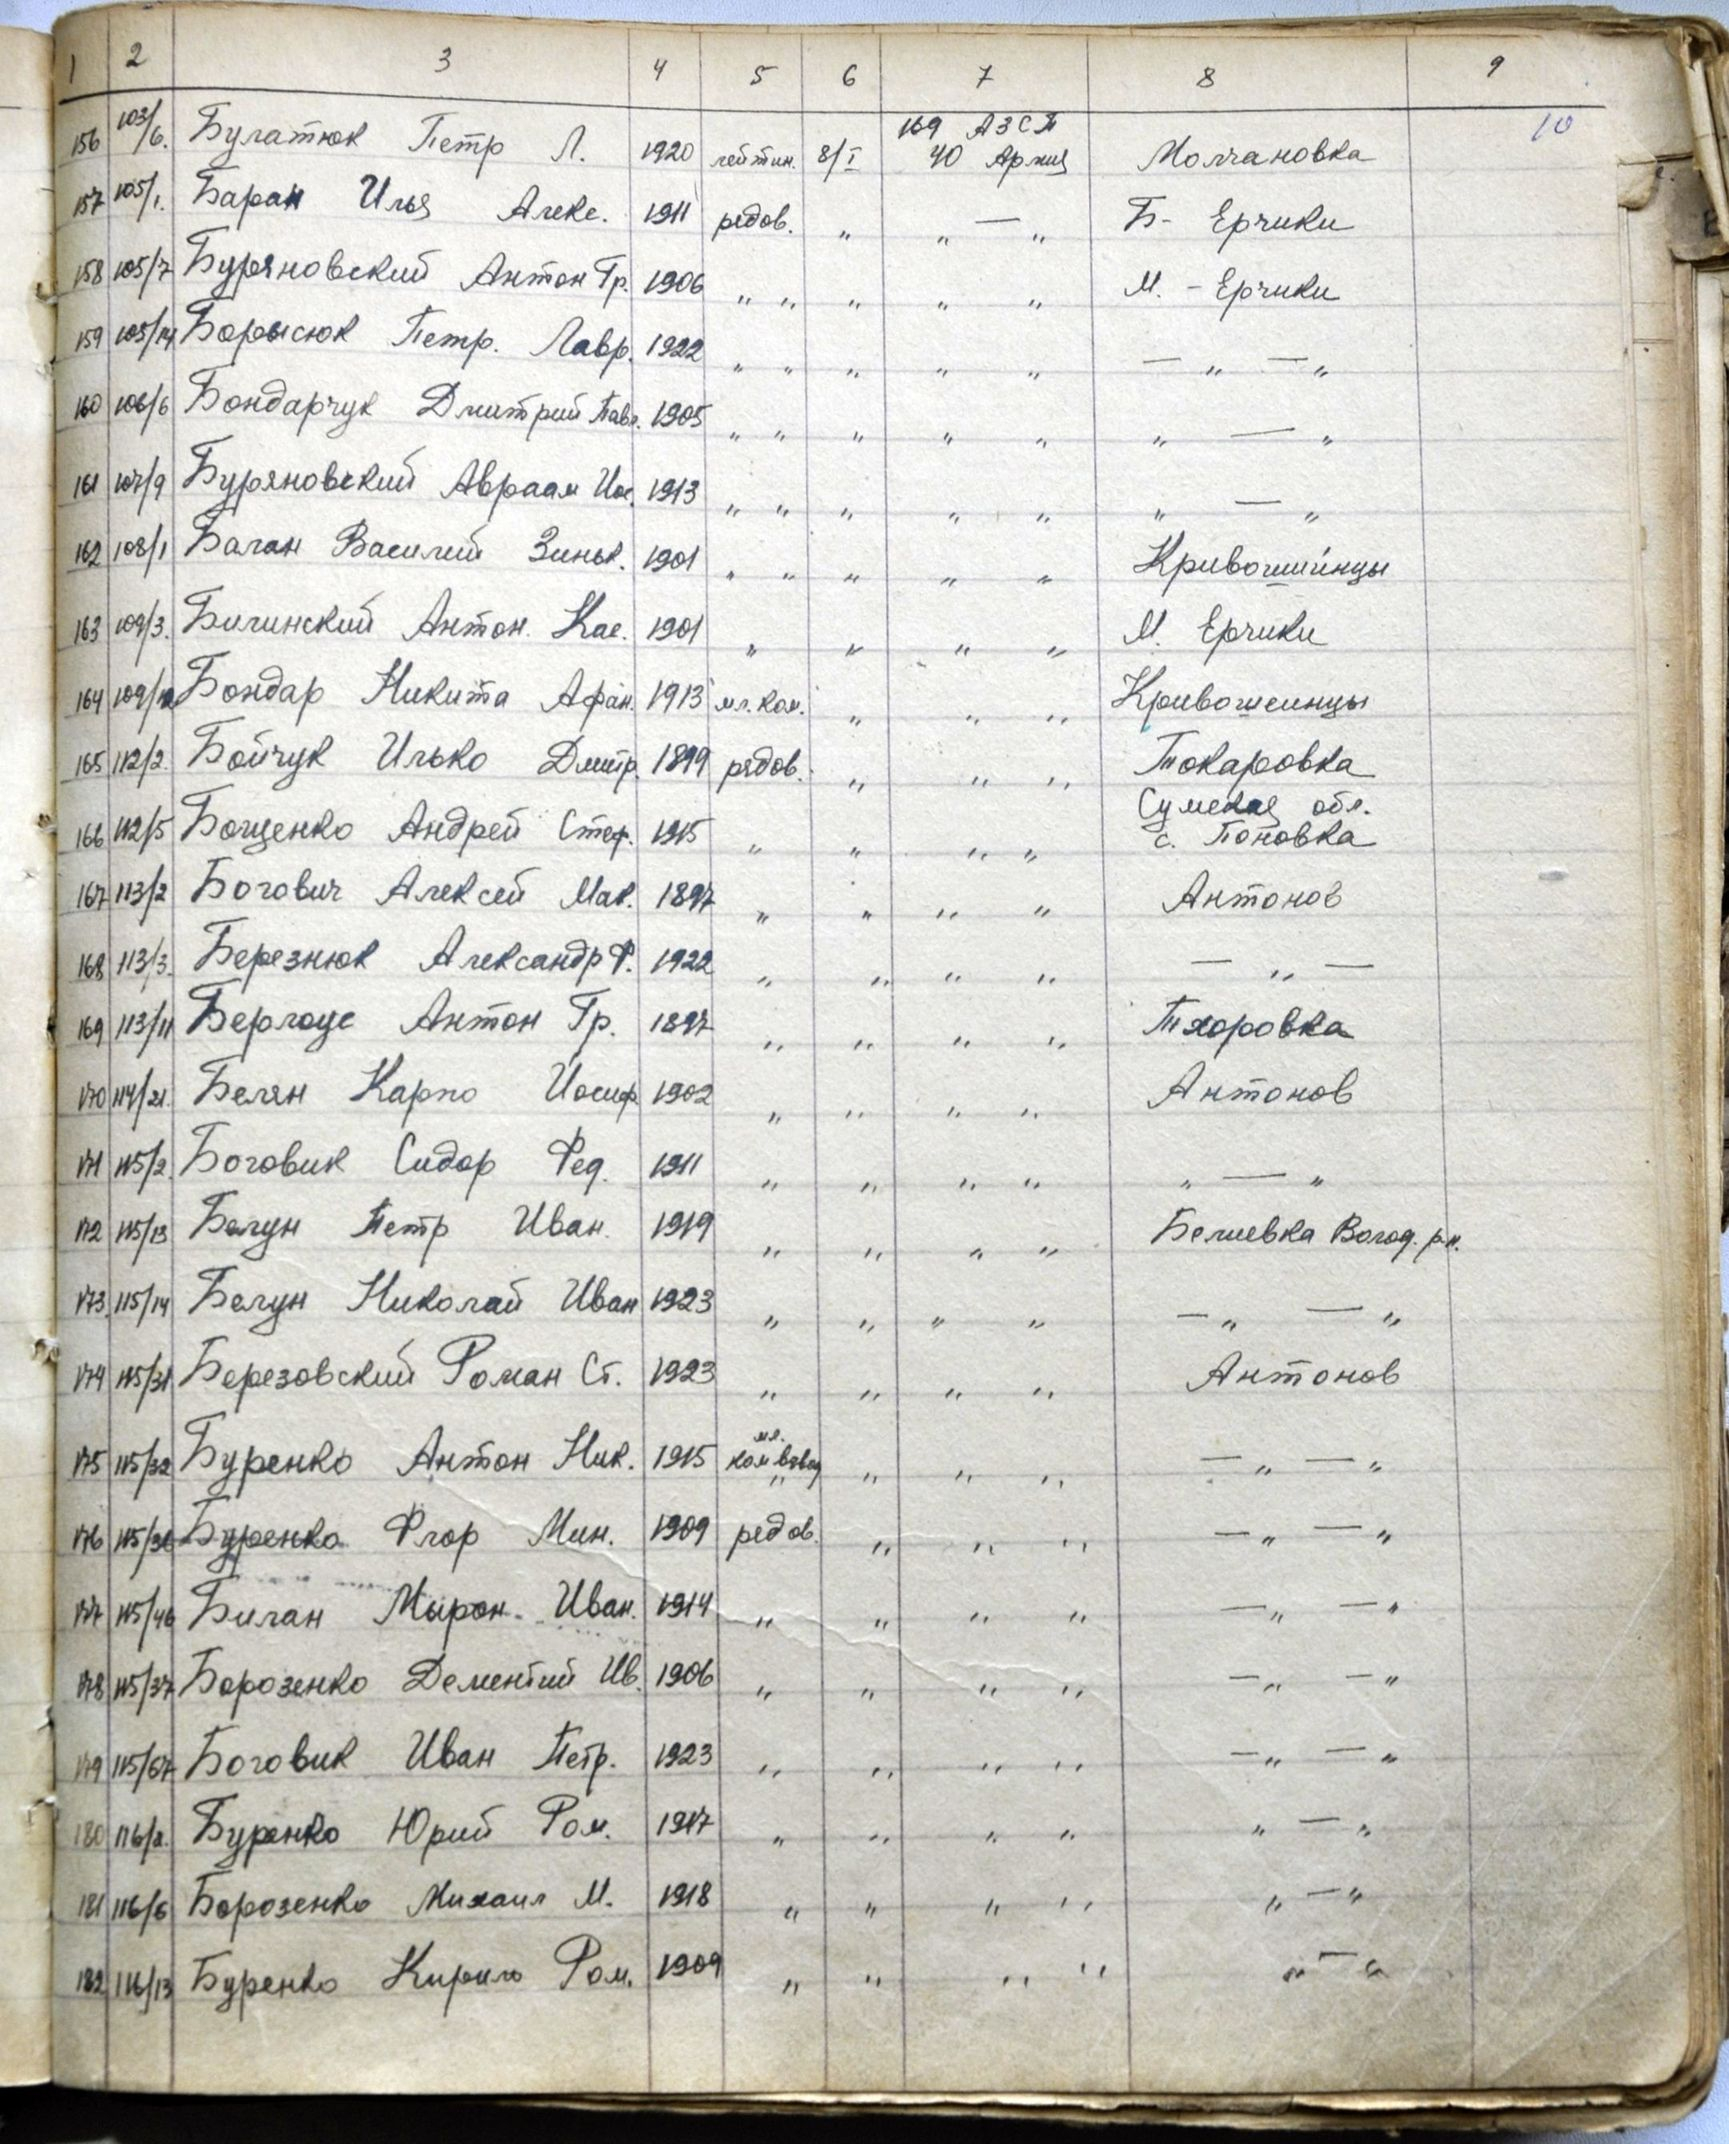 1 2 3 4 5 6 7 8 9
10
156 103/6. Булатюк Петр Л. 1920 лейтин. 8/I 169 АЗСП 40 Армия Молчановка
157 105/1. Баран Илья Алекс. 1911 рядов. „ „ — „ Б- Ерчики
158 105/7 Буряновский Антон Гр. 1906 „ „ „ „ „ М. - Ерчики
159 105/14 Борысюк Петр. Лавр. 1922 „ „ „ „ „ — „ — „
160 106/6 Бондарчук Дмитрий Павл. 1905 „ „ „ „ „ „ — „
161 107/9 Буряновский Авраам Иос. 1913 „ „ „ „ „ „ — „
162 108/1 Балан Василий Зиньк. 1901 „ „ „ „ „ Кривошиинцы
163 109/3. Биличский Антон. Кас. 1901 „ „ „ „ М. Ерчики
164 109/12 Бондар Никита Афан. 1913 мл. ком. „ „ „ Кривошеинцы
165 112/2. Бойчук Илько Дмитр. 1899 рядов. „ „ „ Токаровка
166 112/5 Бощенко Андрей Стеф. 1915 „ „ „ „ Сумская обл. с. Поповка
167 113/2 Богович Алексей Мак. 1897 „ „ „ „ Антонов
168 113/3. Березнюк Александр Ф. 1922 „ „ „ „ — „ —
169 113/11 Берлоус Антон Гр. 1897 „ „ „ „ Тхоровка
170 114/21. Белян Карпо Иосиф. 1902 „ „ „ „ Антонов
171 115/2. Боговик Сидор Фед. 1911 „ „ „ „ „ — „
172 115/13 Белун Петр Иван. 1919 „ „ „ „ Белиевка Волод. р-н.
173. 115/14 Белун Николай Иван 1923 „ „ „ „ — „ — „
174 115/31 Березовский Роман Ст. 1923 „ „ „ „ Антонов
175 115/32 Буренко Антон Ник. 1915 мл. ком взвод „ „ „ „ — „ — „
176 115/36 Буренко Флор Мин. 1909 рядов. „ „ „ — „ — „
177 115/46 Билан Мырон. Иван. 1914 „ „ „ „ — „ — „
178 115/37 Борозенко Дементий Ив. 1906 „ „ „ „ — „ — „
179 115/67 Боговик Иван Петр. 1923 „ „ „ „ — „ — „
180 116/2. Буренко Юрий Ром. 1917 „ „ „ „ „ — „
181 116/6 Борозенко Михаил М. 1918 „ „ „ „ „ — „
182 116/13 Буренко Кирило Ром. 1909 „ „ „ „ „ — „